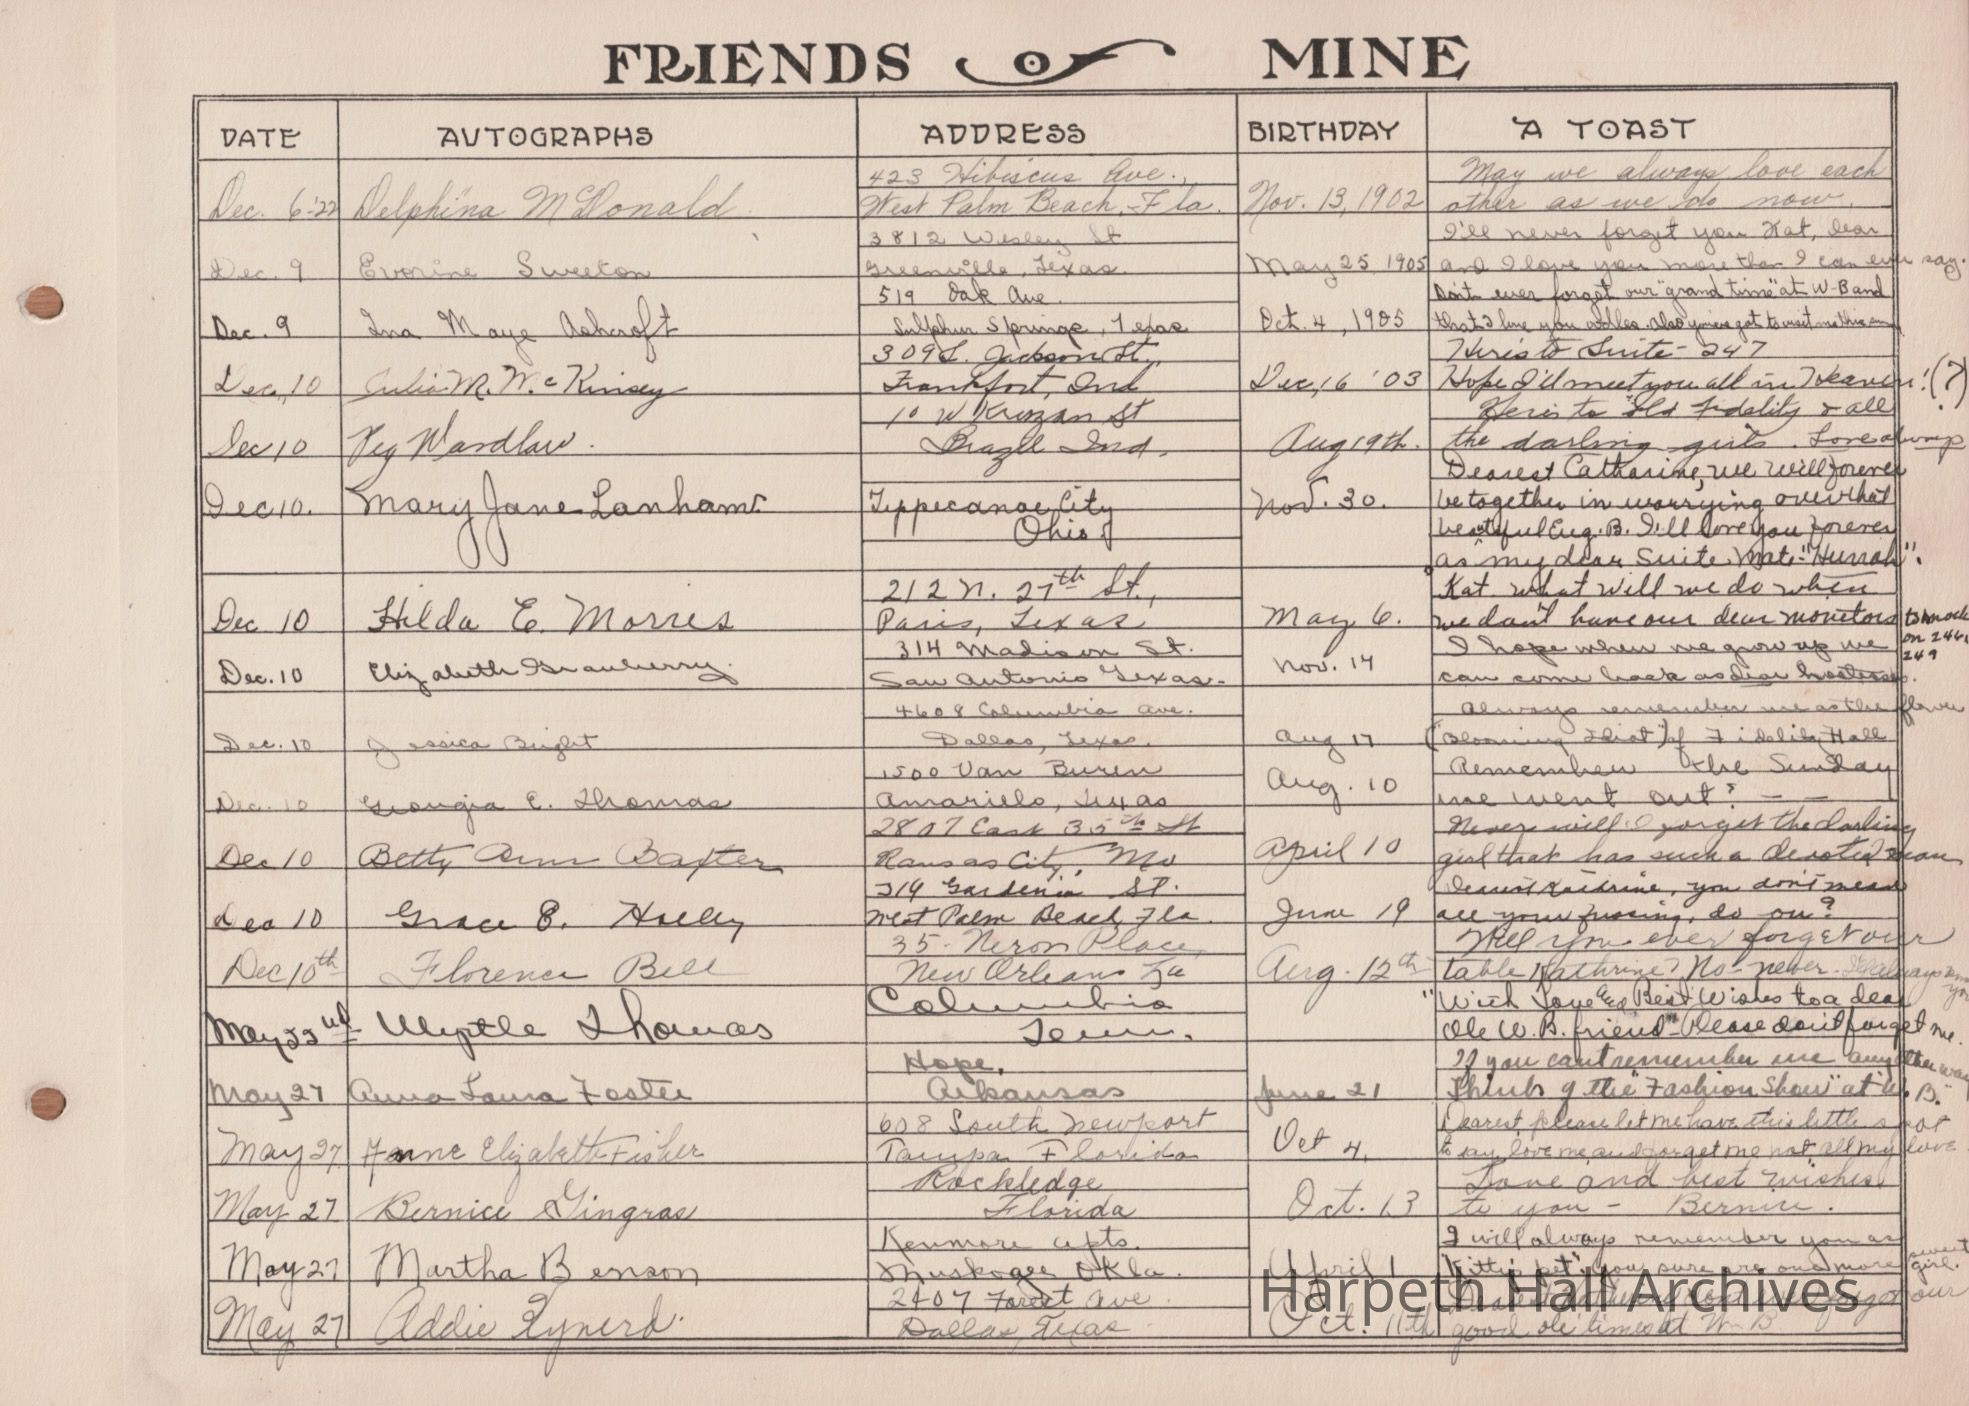 FRIENDS OF MINE
DATE AUTOGRAPHS ADDRESS BIRTHDAY A TOAST
423 Hibiscus Ave., May we always love each
Dec. 6-'22 Delphina McDonald West Palm Beach, Fla. Nov. 13, 1902 other as we do now.
3812 Wesley St I'll never forget you Kat, dear
Dec. 9 Evorine Sweeton Greenville, Texas. May 25, 1905 and I love you more than I can ever say.
519 Oak Ave. Don't ever forget our "grand time" at W-B and
Dec. 9 Ina Maye Ashcroft Sulphur Springs, Texas Oct. 4, 1905 that I love you oodles. Also you've got to visit me this
309 S. Jackson St., Here's to Suite - 247
Dec., 10 Julia M. McKinsey Frankfort, Ind Dec, 16 '03 Hope I'll meet you all in Heaven! (?)
10 W Kruzan St Here's to Old Fidelity & all
Dec 10 Peg Wardlaw. Brazil Ind. Aug 19th. the darling girls. Love always
Dearest Catharine, we will forever
Dec 10. Mary Jane Lanham Tippecanoe City Nov. 30. be together in worrying over what
Ohio beautiful Eug. B. I'll love you forever
as my dear Suite Mate. "Hurrah".
212 N. 27th St., Kat what will we do when
Dec 10 Hilda E. Morris Paris, Texas May 6. we don't have our dear monitors to knock on 246, 249
314 Madison St. I hope when we grow up we
Dec. 10 Elizabeth Granberry. San Antonio Texas. Nov. 14 can come back as dear hostesses.
4608 Columbia Ave. Always remember me as the flower
Dec. 10 Jessica Bright Dallas, Texas. Aug 17 ("Blooming Idiot") of Fidelity Hall
1500 Van Buren Remember the Sunday
Dec. 10 Georgia E. Thomas Amarillo, Texas Aug. 10 we went out? - -
2807 East 35th St Never will I forget the darling
Dec 10 Betty Ann Baxter Kansas City, Mo April 10 girl that has such a devoted man
219 Gardenia St. Dearest Kathrine, you don't mean
Dec 10 Grace E. Holley West Palm Beach Fla. June 19 all your fussing, do you?
35- Neron Place, Will you ever forget our
Dec 10th Florence Bell New Orleans La Aug. 12th table Kathrine? No - never.
Columbia "With Love and Best Wishes to a dear
May 22nd Myrtle Thomas Tenn. Ole W. B. friend" - Please don't forget me.
Hope, If you can't remember me any other way
May 27 Anna Laura Foster Arkansas June 21 Think of the "Fashion Show" at W. B."
608 South Newport Dearest, please let me have this little spot
May 27 Anne Elizabeth Fisher Tampa Florida Oct 4, to say, love me, and forget me not, all my love
Rockledge Love and best wishes
May 27 Bernice Gingras Florida Oct. 13 to you - Bernice.
Kenmore Apts. I will always remember you as
May 27 Martha Benson Muskogee Okla. April 1 "Kitty's pet", you sure are one more sweet girl.
2407 Forest Ave. forget our
May 27 Addie Rynerd. Dallas, Texas Oct. 11th good ole times at W-B
Harpeth Hall Archives